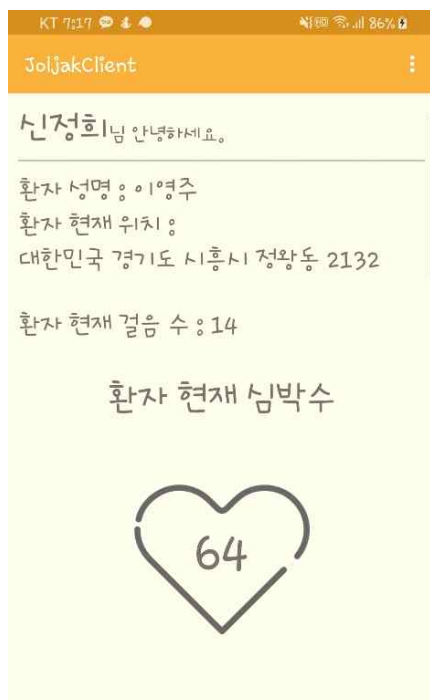 KT 7:17 86%
JoljakClient
신정희님 안녕하세요.
환자 성명 : 이영주
환자 현재 위치 :
대한민국 경기도 시흥시 정왕동 2132
환자 현재 걸음 수 : 14
환자 현재 심박수
64